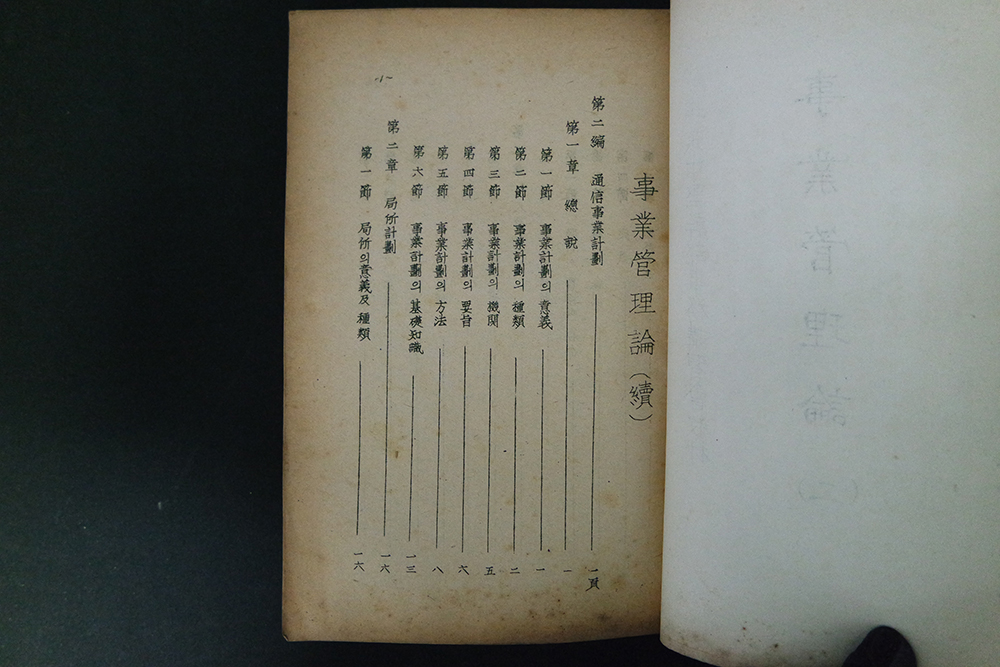 事業管理論(續)
第二編 通信事業計劃 一頁
第一章 總說 一
第一節 事業計劃의 意義 一
第二節 事業計劃의 種類 二
第三節 事業計劃의 機関 五
第四節 事業計劃의 要旨 六
第五節 事業計劃의 方法 八
第六節 事業計劃의 基礎知識 一三
第二章 局所計劃 一六
第一節 局所의 意義及 種類 一六
-1-
事業管理論
(二)